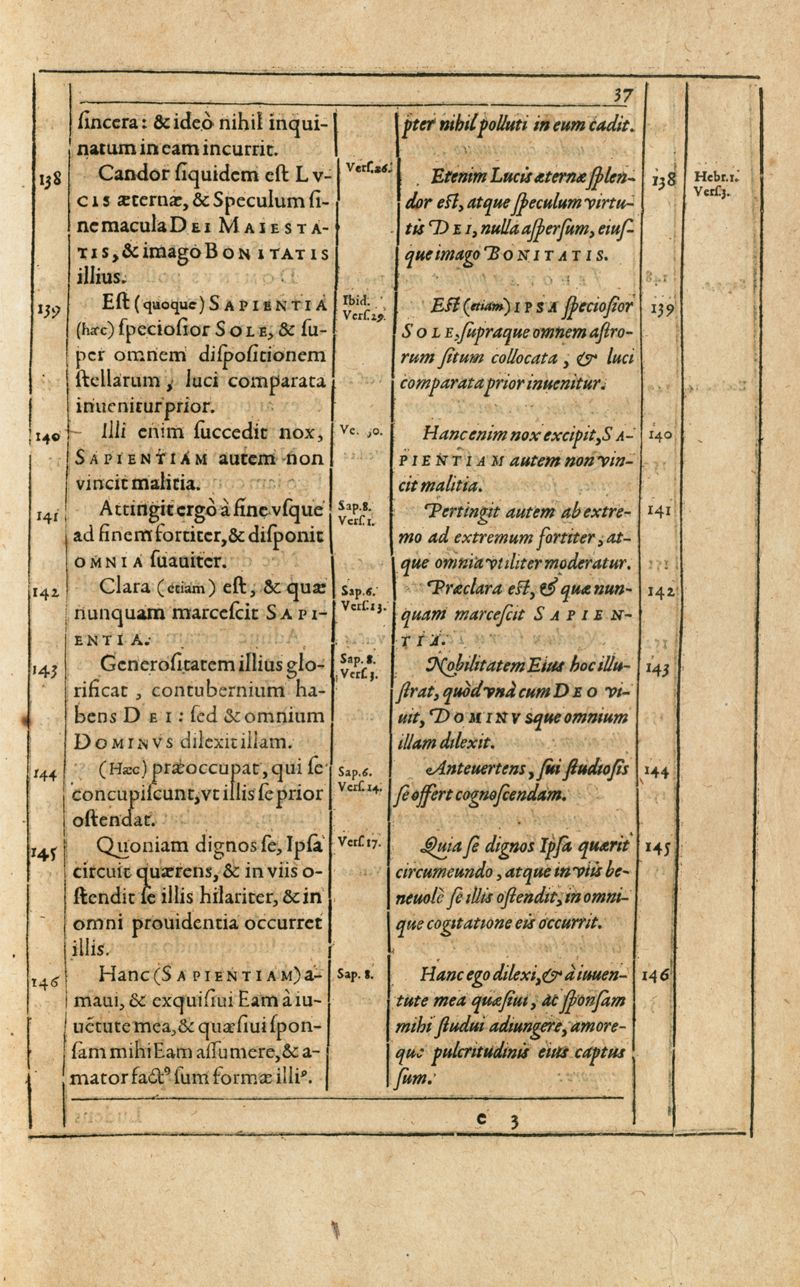 37
sincera: & ideò nihil inqui-
natum in eam incurrit.
138
Candor siquidem est LV-
CIS æternæ, & Speculum si-
ne macula DEI MAIESTA-
TIS, & imago BONITATIS
illius.
139
Est (quoque) SAPIENTIA
(hæc) speciosior SOLE, & su-
per omnem dispositionem
stellarum, luci comparata
inuenitur prior.
140
Illi enim succedit nox,
SAPIENTIAM autem non
vincit malitia.
141
Attingit ergò à fine vsque
ad finem fortiter, & disponit
OMNIA suauiter.
142
Clara (etiam) est, & quæ
nunquam marcescit SAPI-
ENTIA.
143
Generositatem illius glo-
rificat, contubernium ha-
bens DEI: sed & omnium
DOMINVS dilexit illam.
144
(Hæc) præoccupat, qui se
concupiscunt, vt illis se prior
ostendat.
145
Quoniam dignos se, Ipsa
circuit quærens, & in viis o-
stendit se illis hilariter, & in
omni prouidentia occurret
illis.
146
Hanc (SAPIENTIAM) a-
maui, & exquisiui Eam à iu-
uētute mea, & quæsiui spon-
sam mihi Eam assumere, & a-
mator factꝰ sum formæ illiꝰ.
Vers.26.
Ibid.
Vers.29.
Ve. 30.
Sap.8.
Vers.1.
Sap.6.
Vers.13.
Sap.8.
Vers.3.
Sap.6.
Vers.14.
Vers.17.
Sap.8.
pter nihil polluti in eum cadit.
Etenim Lucis æternæ splen-
dor est, atque speculum virtu-
tis DEI, nulla aspersum, eius-
que imago BONITATIS.
Est (etiam) IPSA speciosior
SOLE, supraque omnem astro-
rum situm collocata, & luci
comparata prior inuenitur.
Hanc enim nox excipit, SA-
PIENTIAM autem non vin-
cit malitia.
Pertingit autem ab extre-
mo ad extremum fortiter, at-
que omnia vtiliter moderatur.
Præclara est, & quæ nun-
quam marcescit SAPIEN-
TIA.
Nobilitatem Eius hoc illu-
strat, quòd vnà cum DEO vi-
uit, DOMINVSque omnium
illam dilexit.
Anteuertens, sui studiosis
se offert cognoscendam.
Quia se dignos Ipsa quærit
circumeundo, atque in viis be-
neuolè se illis ostendit, in omni-
que cogitatione eis occurrit.
Hanc ego dilexi, & à iuuen-
tute mea quæsiui, ac sponsam
mihi studui adiungere, amore-
que pulcritudinis eius captus
sum.
138
139
140
141
142
143
144
145
146
Hebr.1.
Vers.3.
C 3